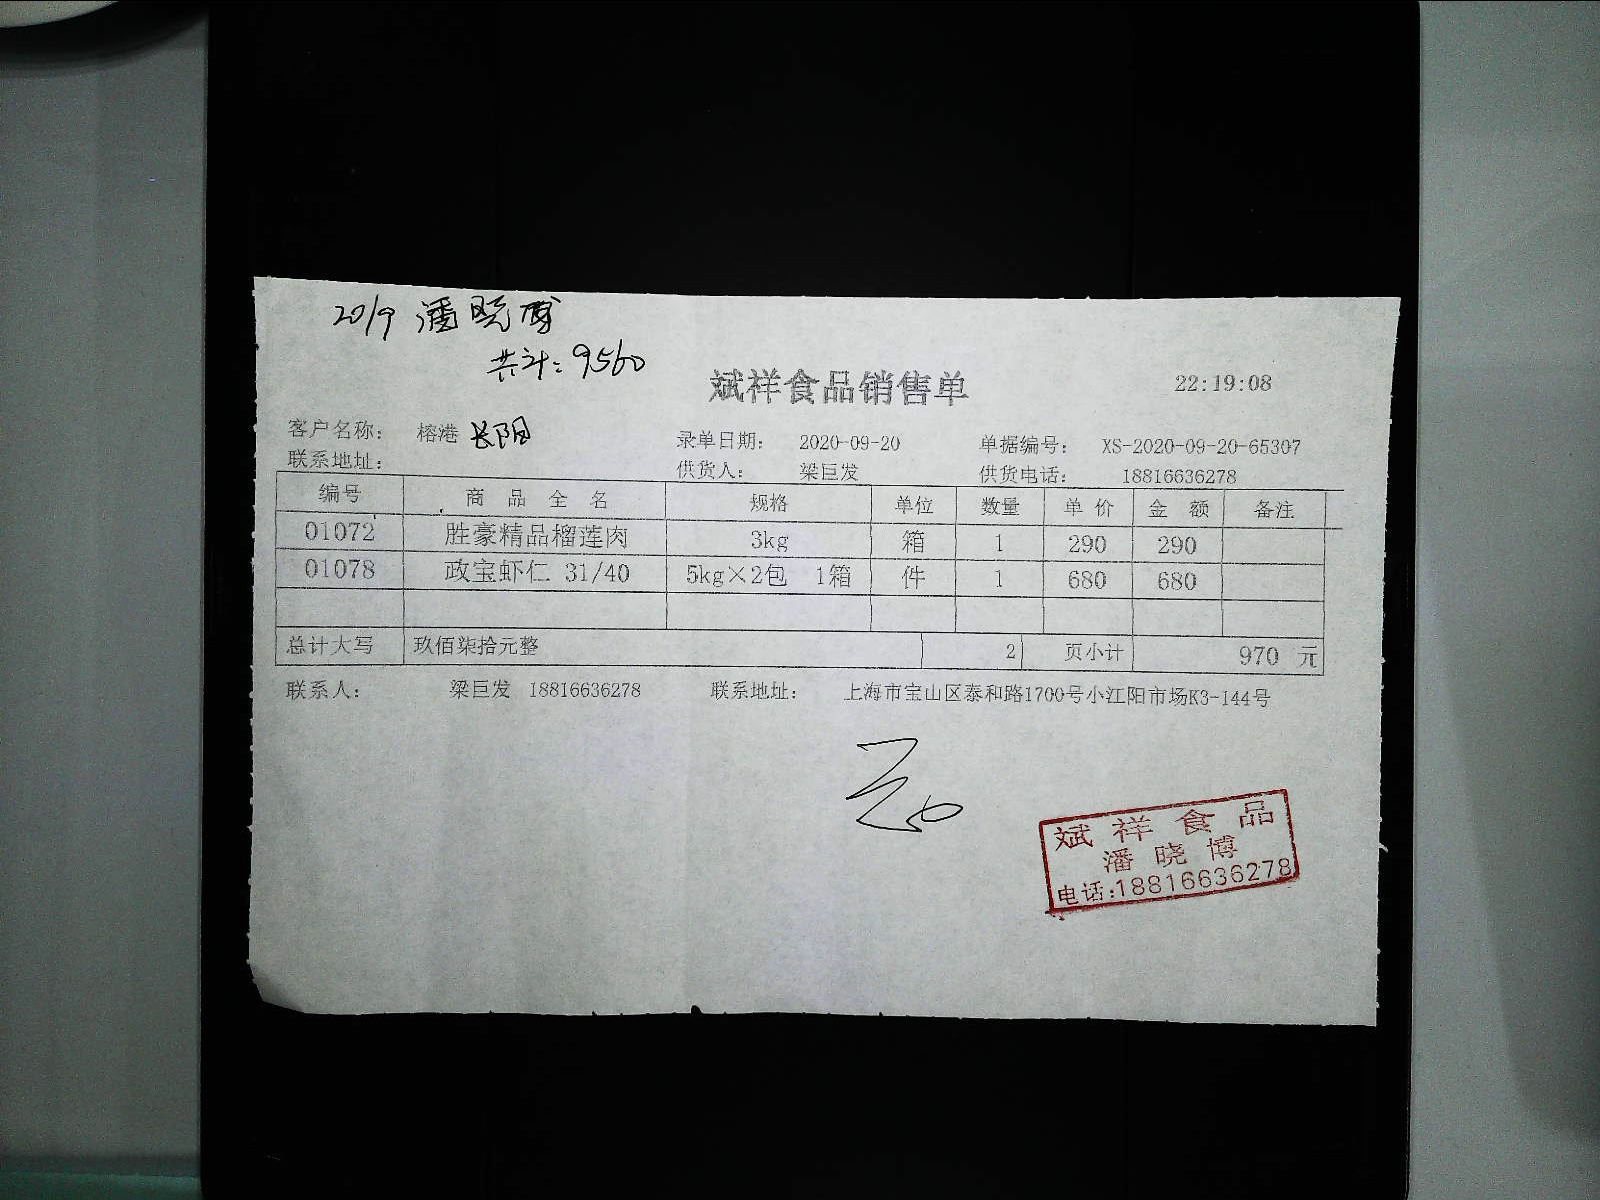 20/9 潘晓博
共计：9560
斌祥食品销售单
22:19:08
客户名称： 榕港 长阳
录单日期： 2020-09-20 单据编号： XS-2020-09-20-65307
联系地址：
供货人： 梁巨发 供货电话： 18816636278
编号 商 品 全 名 规格 单位 数量 单 价 金 额 备注
01072 胜豪精品榴莲肉 3kg 箱 1 290 290
01078 政宝虾仁 31/40 5kg×2包 1箱 件 1 680 680
总计大写 玖佰柒拾元整 2 页小计 970 元
联系人： 梁巨发 18816636278 联系地址： 上海市宝山区泰和路1700号小江阳市场K3-144号
斌 祥 食 品
潘 晓 博
电话:18816636278